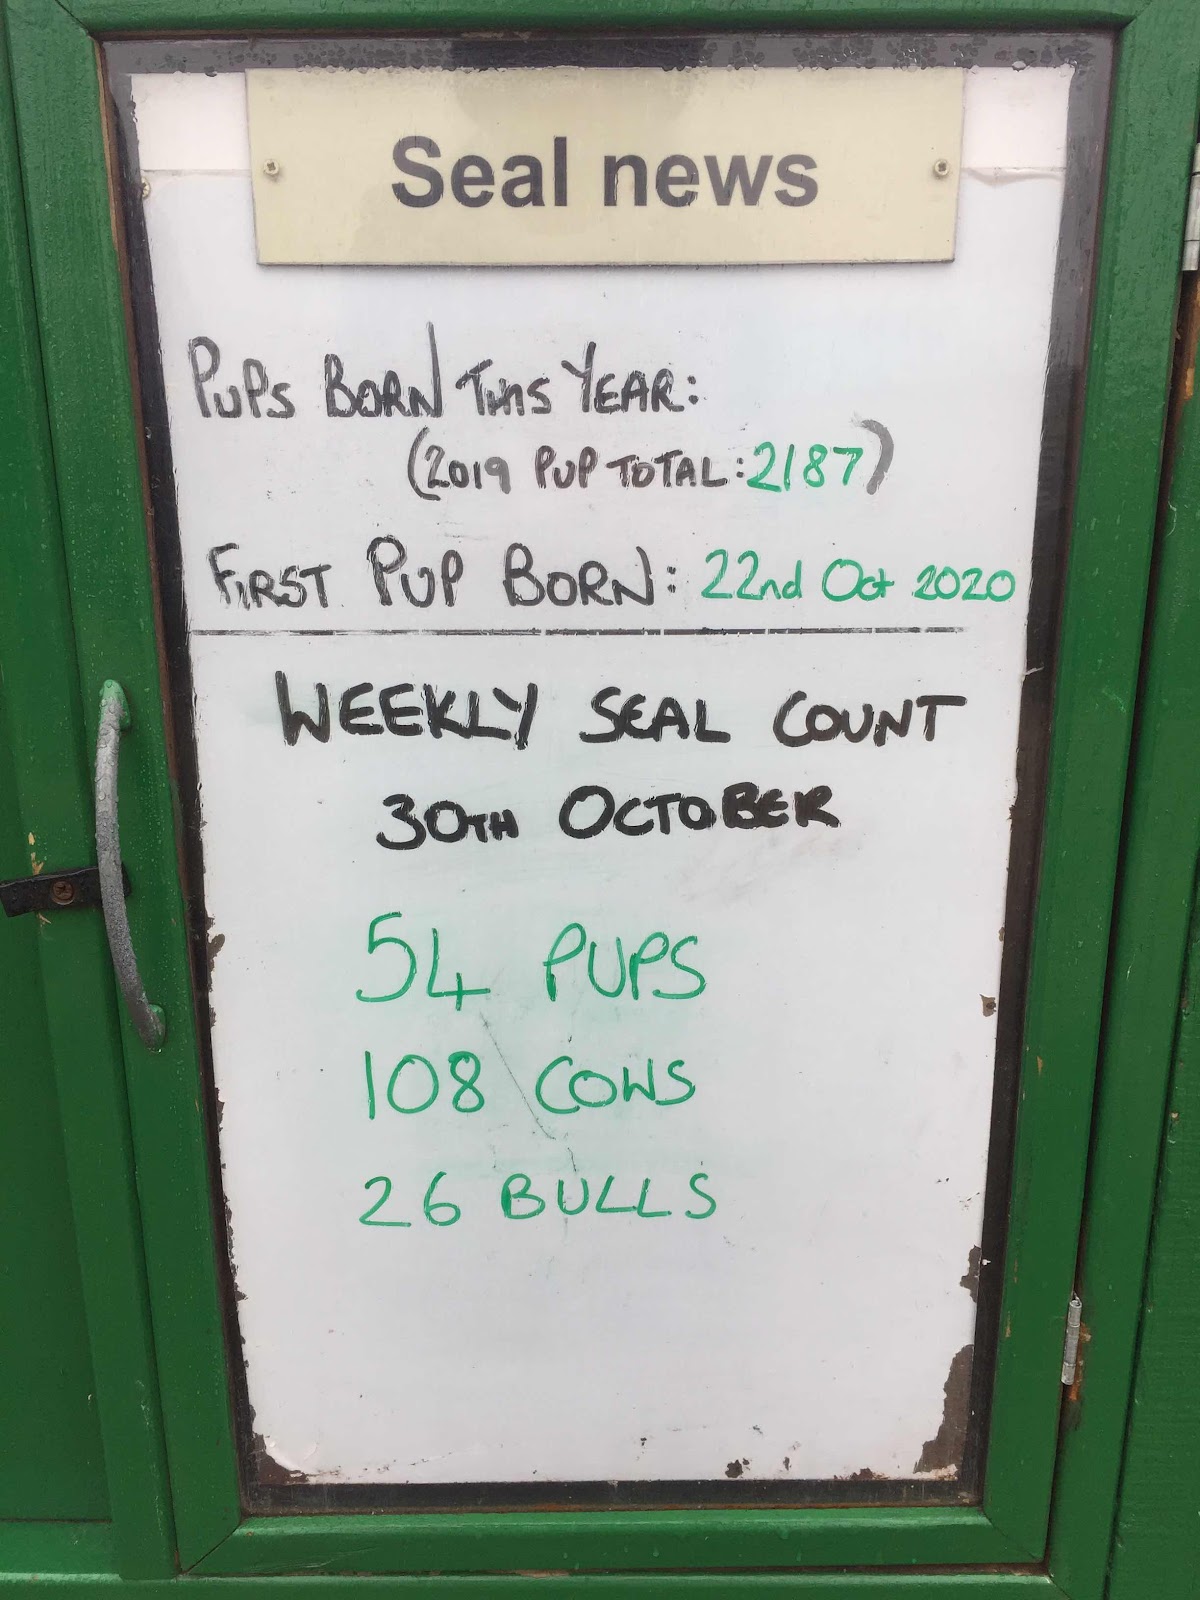 Seal news
PUPS BORN THIS YEAR:
(2019 PUP TOTAL: 2187)
FIRST PUP BORN: 22nd Oct 2020
WEEKLY SEAL COUNT
30TH OCTOBER
54 PUPS
108 COWS
26 BULLS